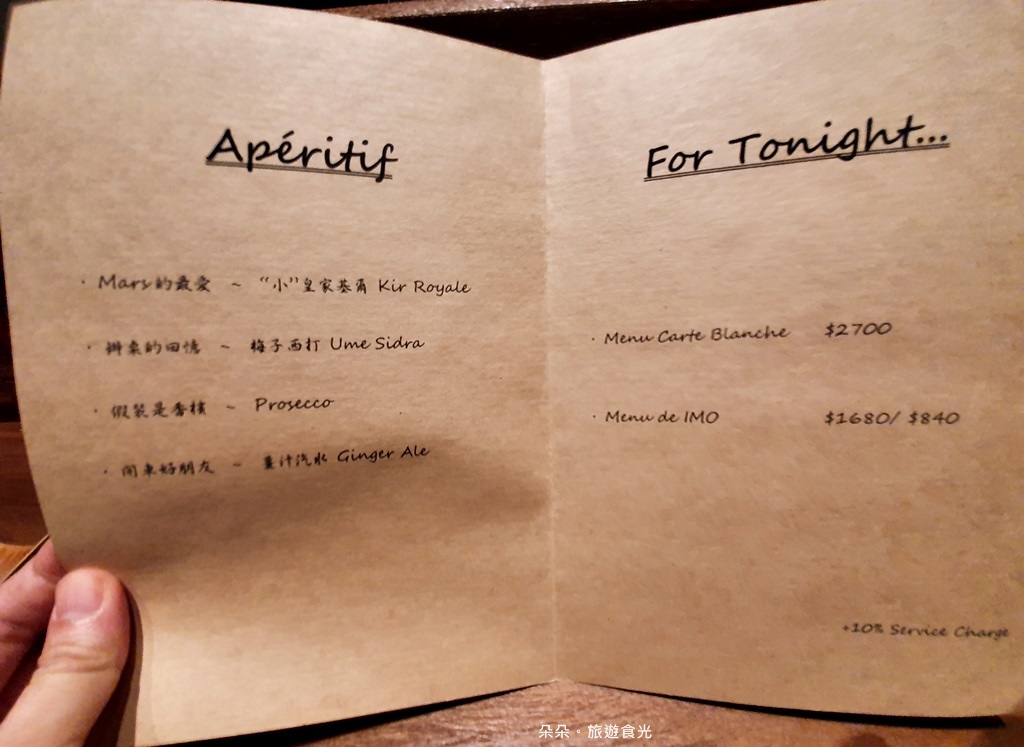 Apéritif
· Mars的最愛 ~ “小”皇家基爾 Kir Royale
· 辦桌的回憶 ~ 梅子西打 Ume Sidra
· 假裝是香檳 ~ Prosecco
· 開車好朋友 ~ 薑汁汽水 Ginger Ale
For Tonight...
· Menu Carte Blanche $2700
· Menu de IMO $1680/ $840
+10% Service Charge
朵朵。旅遊食光